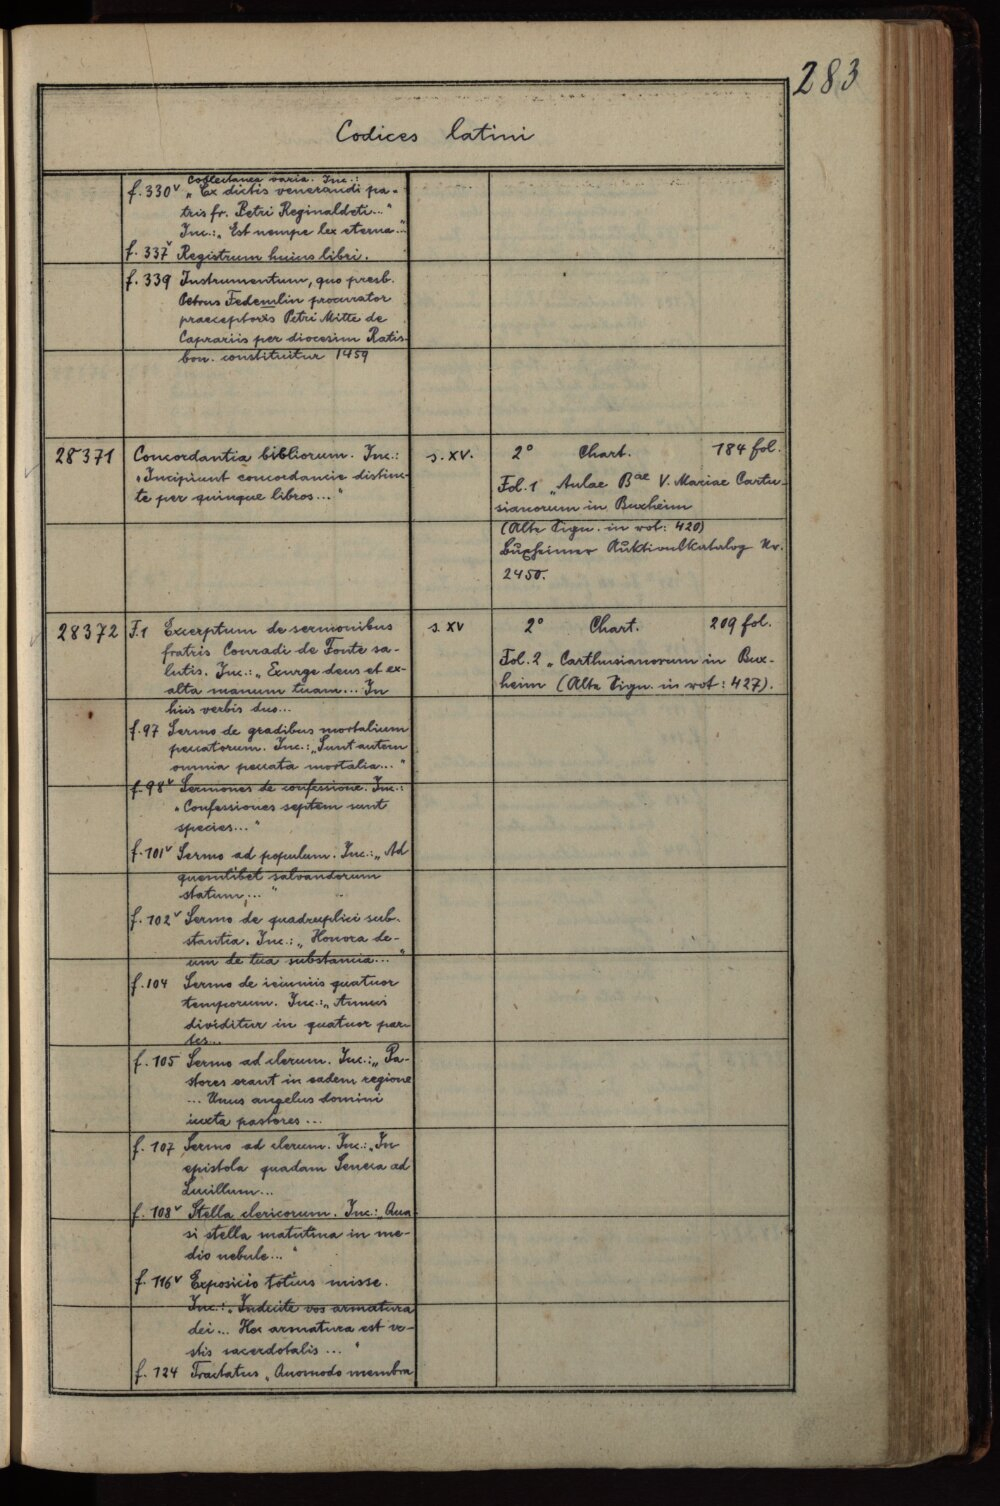 283
Codices latini
Collectanea varia. Inc.:
f. 330v „Ex dictis venerandi pa-
tris fr. Petri Reginaldeti..."
Inc.: „Est nempe lex eterna..."
f. 337v Registrum huius libri.
f. 339 Instrumentum, quo presb.
Petrus Fedemlin procurator
praeceptoris Petri Mitte de
Caprariis per diocesim Ratis-
bon. constituitur 1459
28371 Concordantia bibliorum. Inc.: s. XV. 2° Chart. 184 fol.
„Incipiunt concordancie distinc-
te per quinque libros..."
Fol. 1 „Aulae Bae V. Mariae Cartu-
sianorum in Buxheim
(Alte Sign. in rot: 420)
Buxheimer Auktionskatalog Nr.
2450.
28372 F.1 Excerptum de sermonibus s. XV 2° Chart. 209 fol.
fratris Conradi de Fonte sa-
lutis. Inc.: „Exurge deus et ex-
alta manum tuam... In
hiis verbis duo...
Fol. 2 „Carthusianorum in Bux-
heim (Alte Sign. in rot: 427).
f. 97 Sermo de gradibus mortalium
peccatorum. Inc.: „Sunt autem
omnia peccata mortalia..."
f. 98v Sermones de confessione. Inc.:
„Confessiones septem sunt
species..."
f. 101v Sermo ad populum. Inc.: „Ad
quemlibet salvandorum
statum..."
f. 102v Sermo de quadruplici sub-
stantia. Inc.: „Honora de-
um de tua substancia..."
f. 104 Sermo de ieiuniis quatuor
temporum. Inc.: „Annus
dividitur in quatuor par-
tes...
f. 105 Sermo ad clerum. Inc.: „Pa-
stores erant in eadem regione
... Unus angelus domini
iuxta pastores...
f. 107 Sermo ad clerum. Inc.: „In
epistola quadam Seneca ad
Lucillum...
f. 108v Stella clericorum. Inc.: „Qua-
si stella matutina in me-
dio nebule..."
f. 116v Exposicio totius misse.
Inc.: „Induite vos armatura
dei... Hoc armatura est ve-
stis sacerdotalis..."
f. 124 Tractatus „Quomodo membra